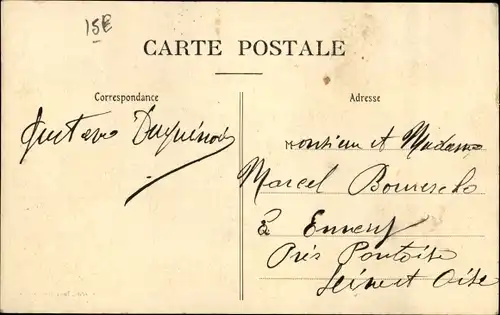 15€
CARTE POSTALE
Correspondance
Adresse
Gustave
Monsieur et Madame
Marcel
à Ennery
Près Pontoise
Seine et Oise